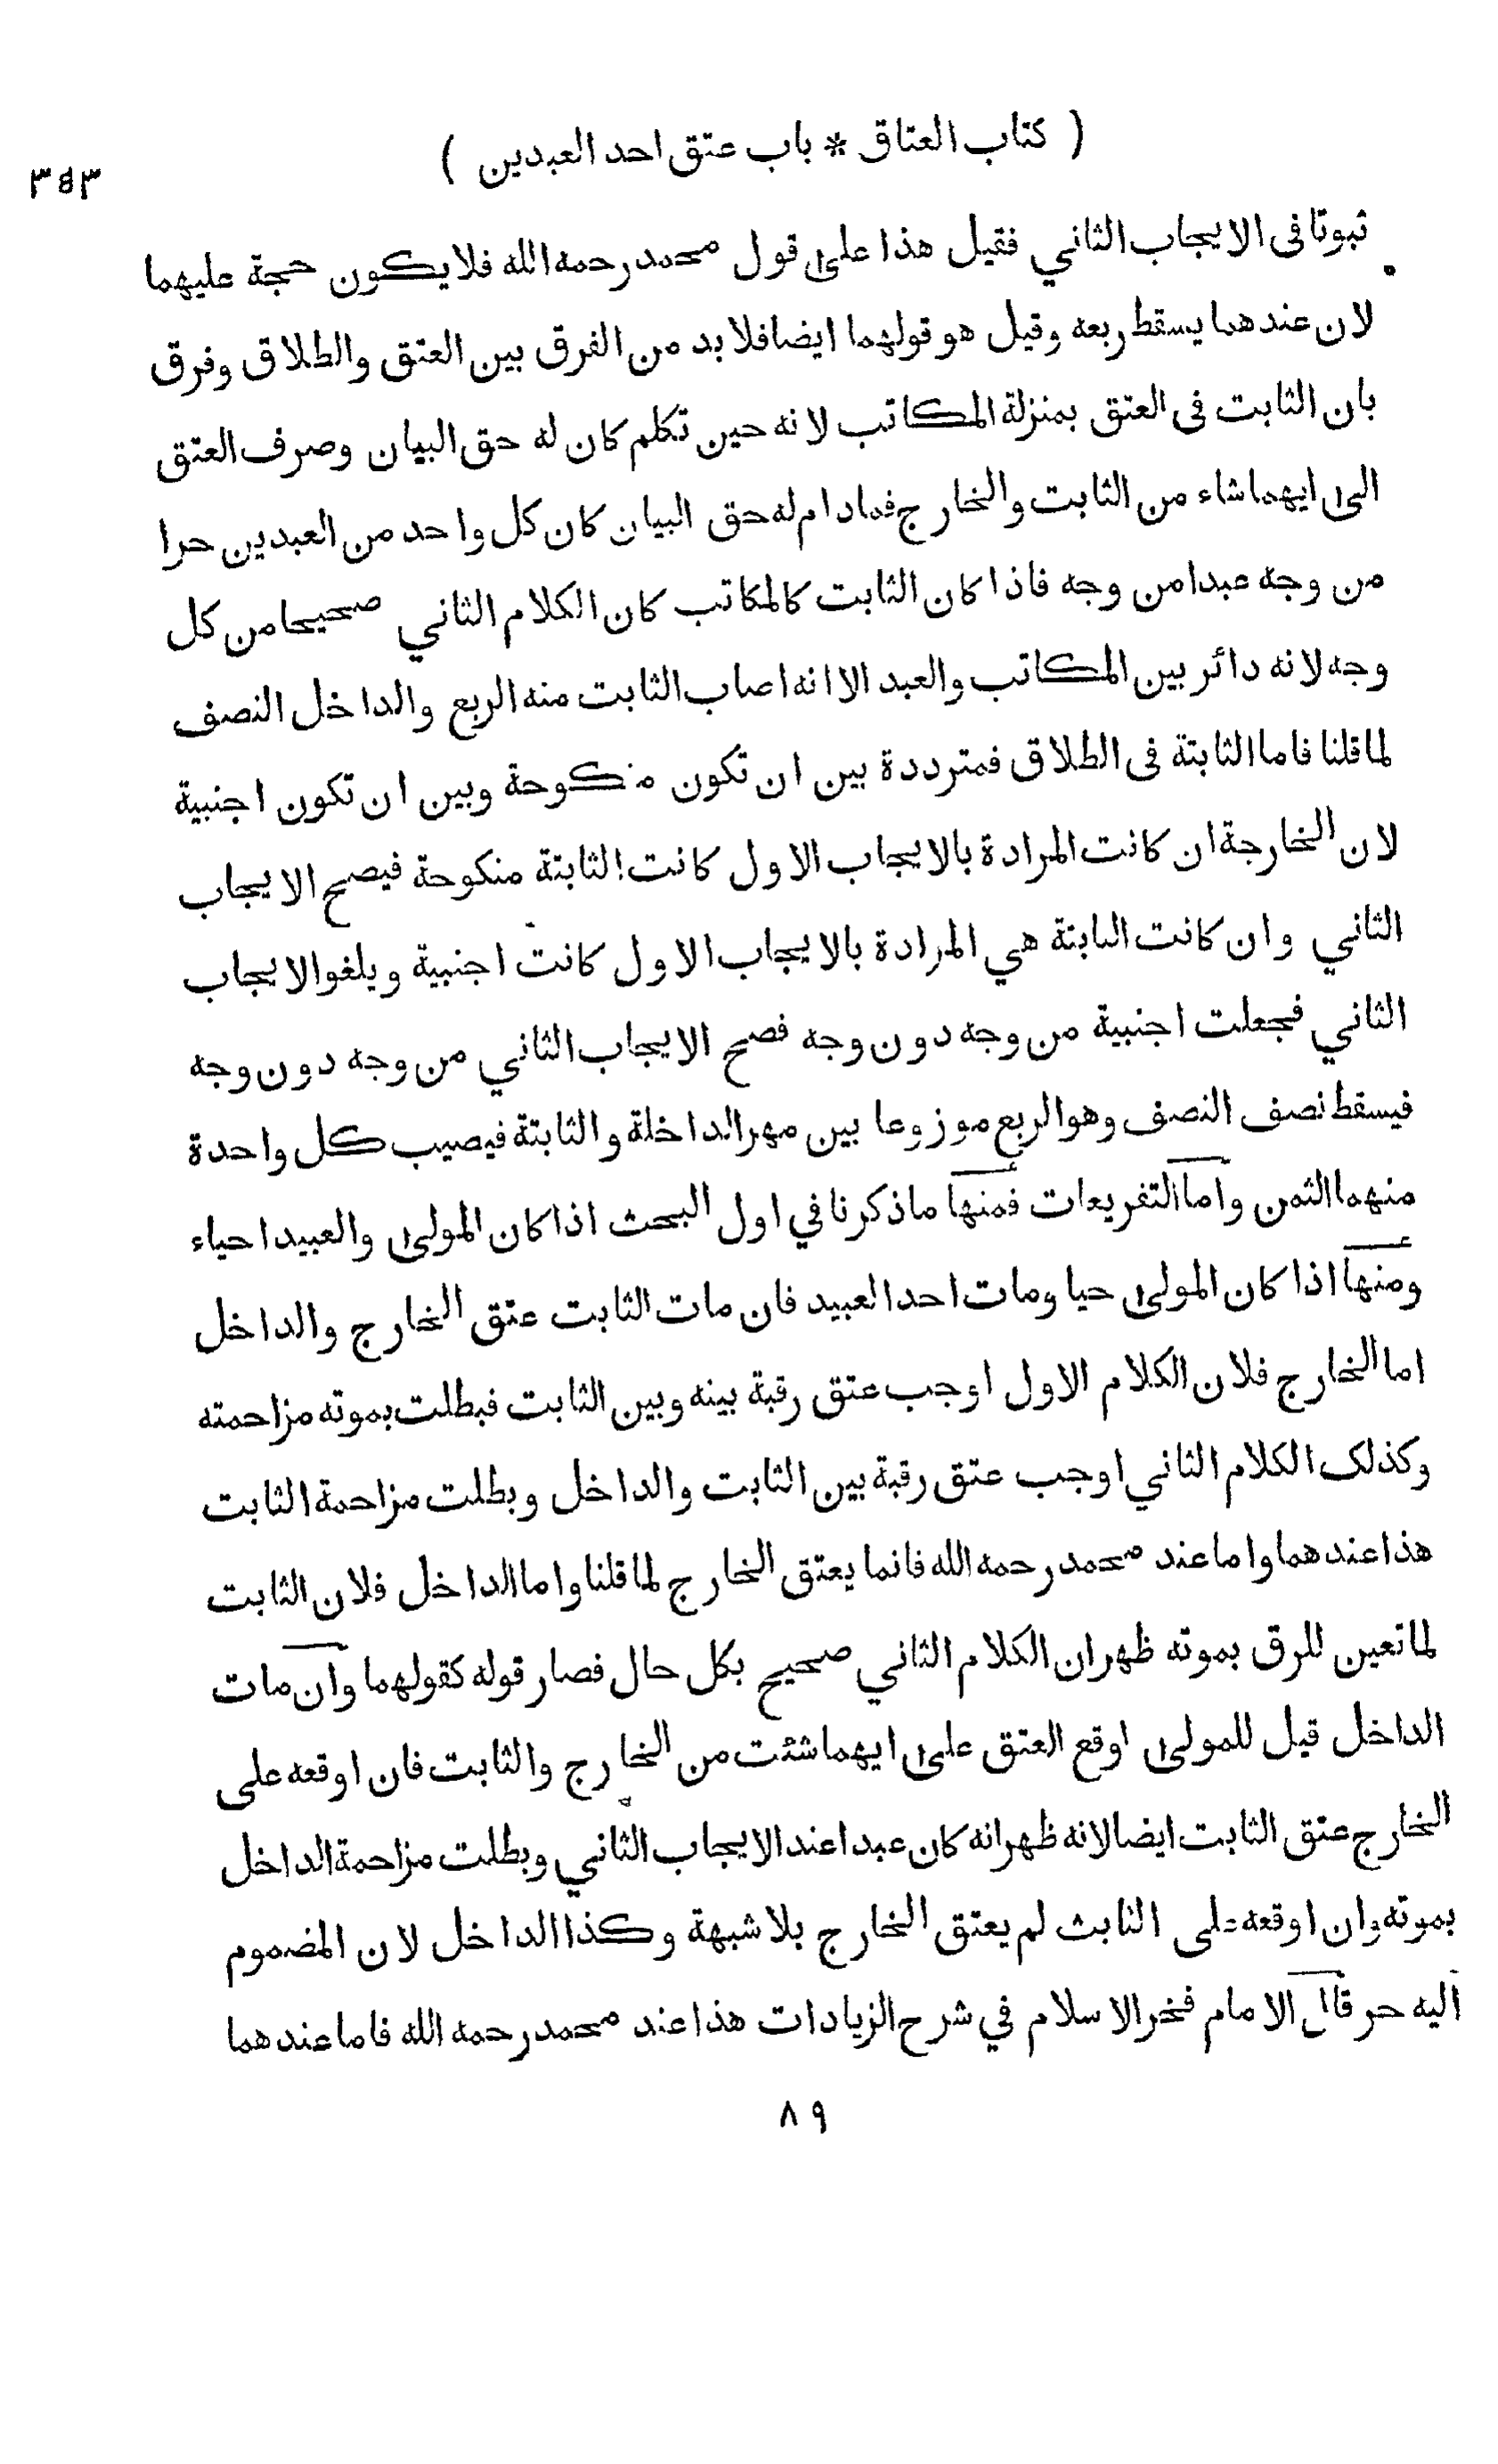 ( كتاب العتاق * باب عتق احد العبدين )
٣٤٣
ثبوتا فى الايجاب الثاني فقيل هذا على قول محمد رحمه الله فلا يكون حجة عليهما
لان عندهما يسقط ربعه وقيل هو قولهما ايضا فلا بد من الفرق بين العتق والطلاق وفرق
بان الثابت فى العتق بمنزلة المكاتب لانه حين تكلم كان له حق البيان وصرف العتق
الى ايهما شاء من الثابت والخارج فمادام له حق البيان كان كل واحد من العبدين حرا
من وجه عبدا من وجه فاذا كان الثابت كالمكاتب كان الكلام الثاني صحيحا من كل
وجه لانه دائر بين المكاتب والعبد الا انه اصاب الثابت منه الربع والداخل النصف
لما قلنا فاما الثابتة فى الطلاق فمترددة بين ان تكون منكوحة وبين ان تكون اجنبية
لان الخارجة ان كانت المرادة بالايجاب الاول كانت الثابتة منكوحة فيصح الايجاب
الثاني وان كانت الثابتة هي المرادة بالايجاب الاول كانت اجنبية ويلغو الايجاب
الثاني فجعلت اجنبية من وجه دون وجه فصح الايجاب الثاني من وجه دون وجه
فيسقط نصف النصف وهو الربع موزوعا بين مهر الداخلة والثابتة فيصيب كل واحدة
منهما الثمن واما التفريعات فمنها ما ذكرنا في اول البحث اذا كان المولى والعبيد احياء
ومنها اذا كان المولى حيا ومات احد العبيد فان مات الثابت عتق الخارج والداخل
اما الخارج فلان الكلام الاول اوجب عتق رقبة بينه وبين الثابت فبطلت بموته مزاحمته
وكذلك الكلام الثاني اوجب عتق رقبة بين الثابت والداخل وبطلت مزاحمة الثابت
هذا عندهما واما عند محمد رحمه الله فانما يعتق الخارج لما قلنا واما الداخل فلان الثابت
لما تعين للرق بموته ظهر ان الكلام الثاني صحيح بكل حال فصار قوله كقولهما وان مات
الداخل قيل للمولى اوقع العتق على ايهما شئت من الخارج والثابت فان اوقعه على
الخارج عتق الثابت ايضا لانه ظهر انه كان عبدا عند الايجاب الثاني وبطلت مزاحمة الداخل
بموته وان اوقعه على الثابت لم يعتق الخارج بلا شبهة وكذا الداخل لان المضموم
اليه حر قال الامام فخر الاسلام في شرح الزيادات هذا عند محمد رحمه الله فاما عندهما
٨٩